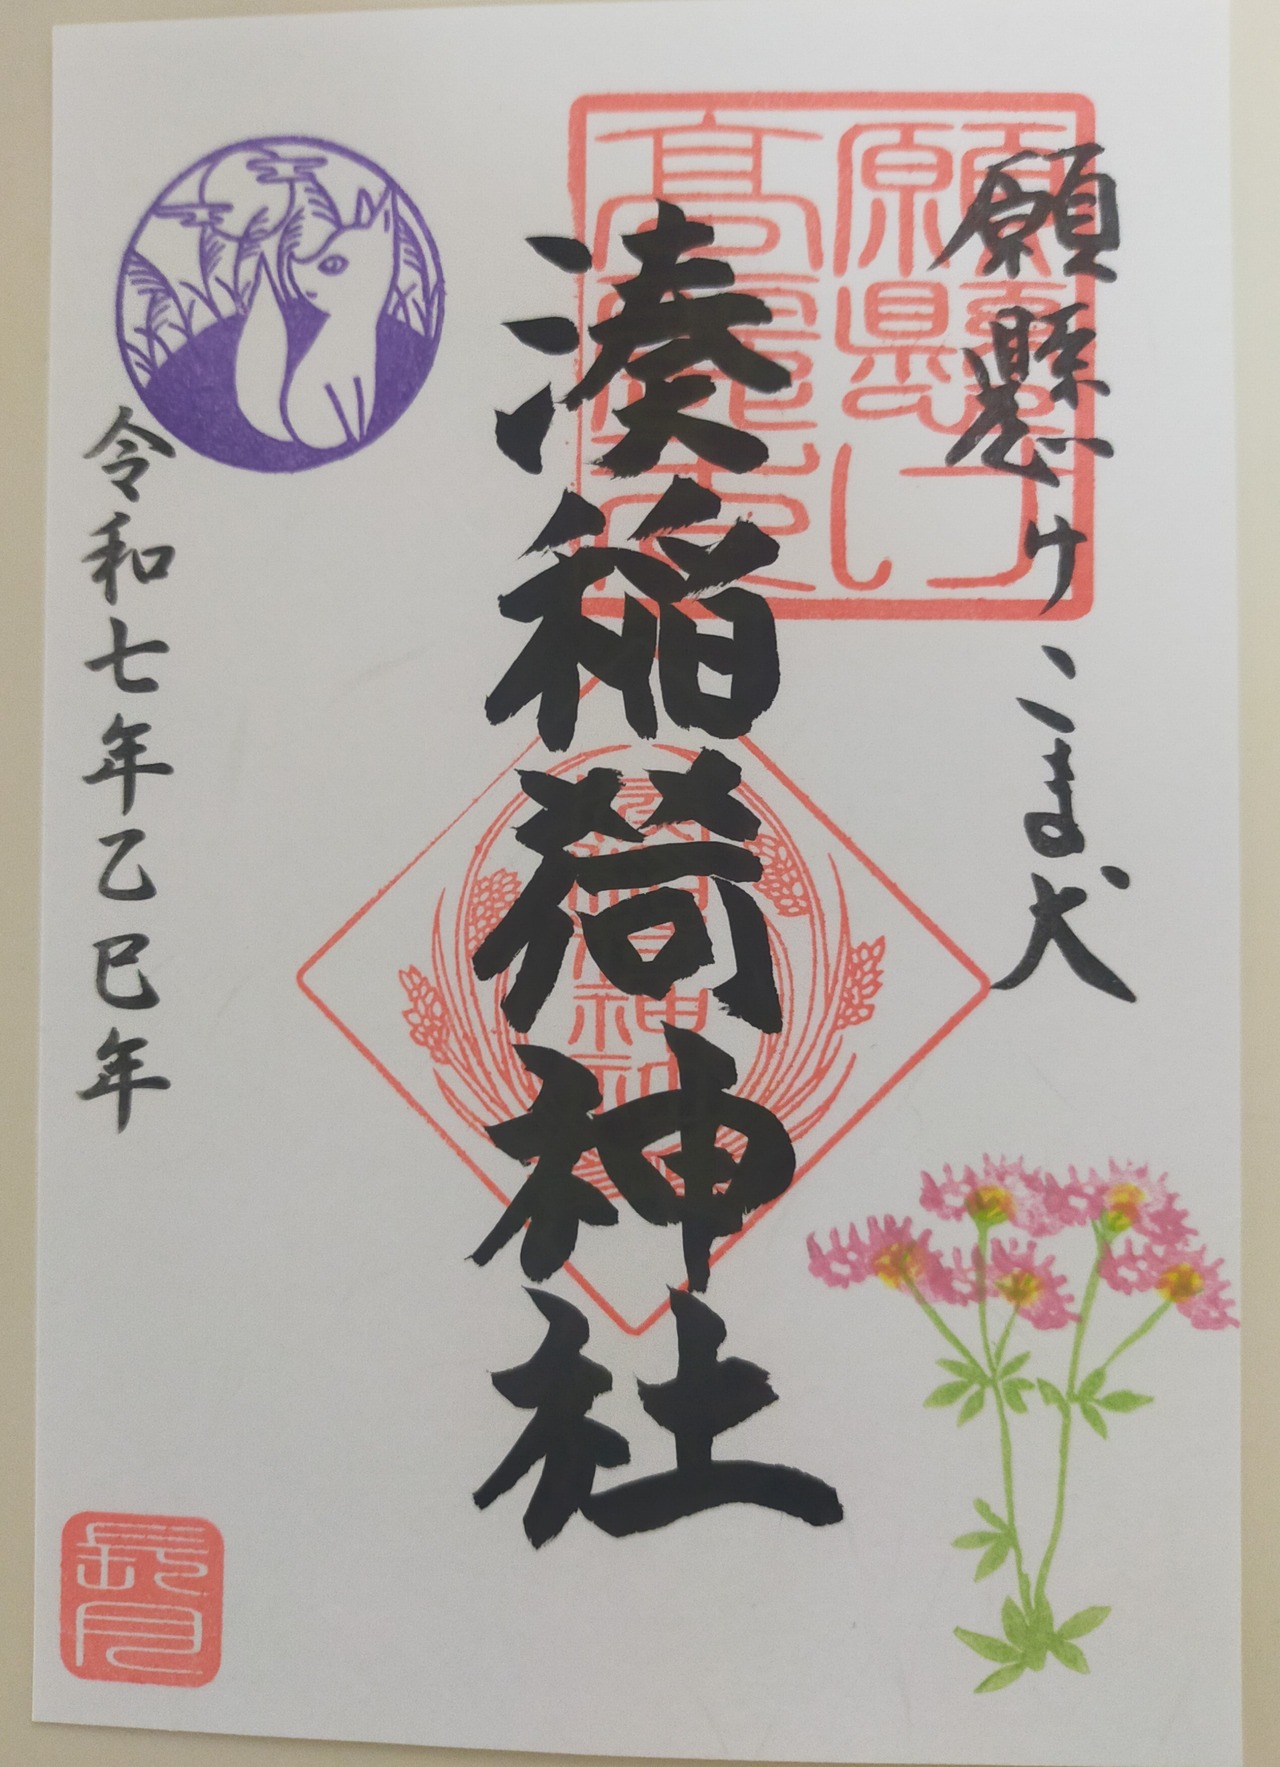 願懸けこま犬
願懸け
高麗犬
湊稲荷神社
令和七年乙巳年
長月